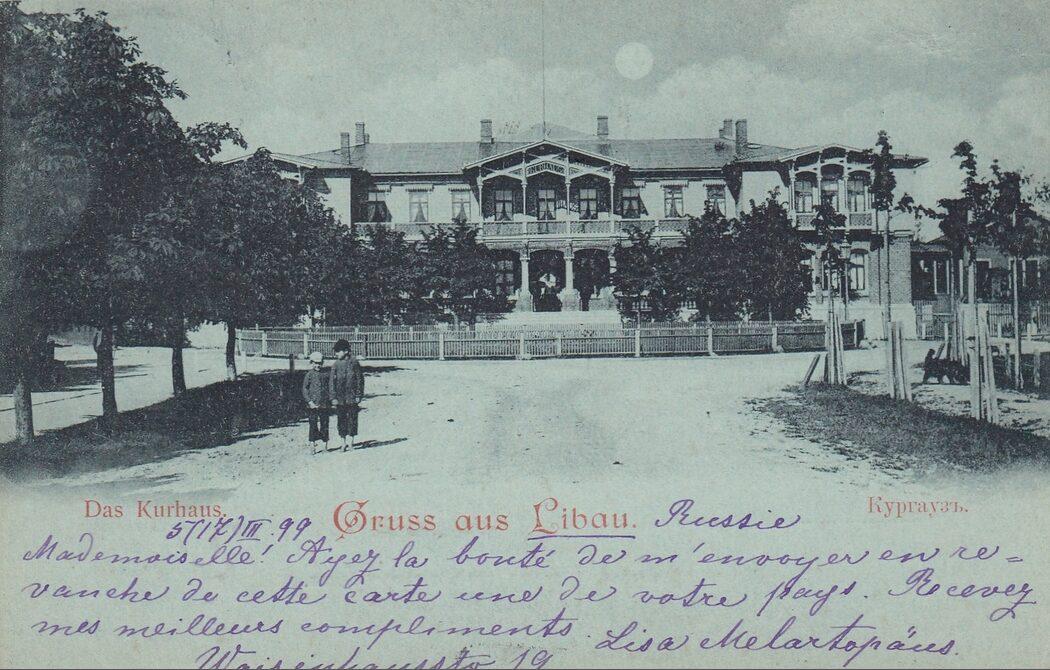 Das Kurhaus.
Gruss aus Libau. Russie
Кургаузъ.
5/17/III.99
Mademoiselle! Ayez la bonté de m'envoyer en re=
vanche de cette carte une de votre pays. Recevez
mes meilleurs compliments. Lisa Melartopäus.
19